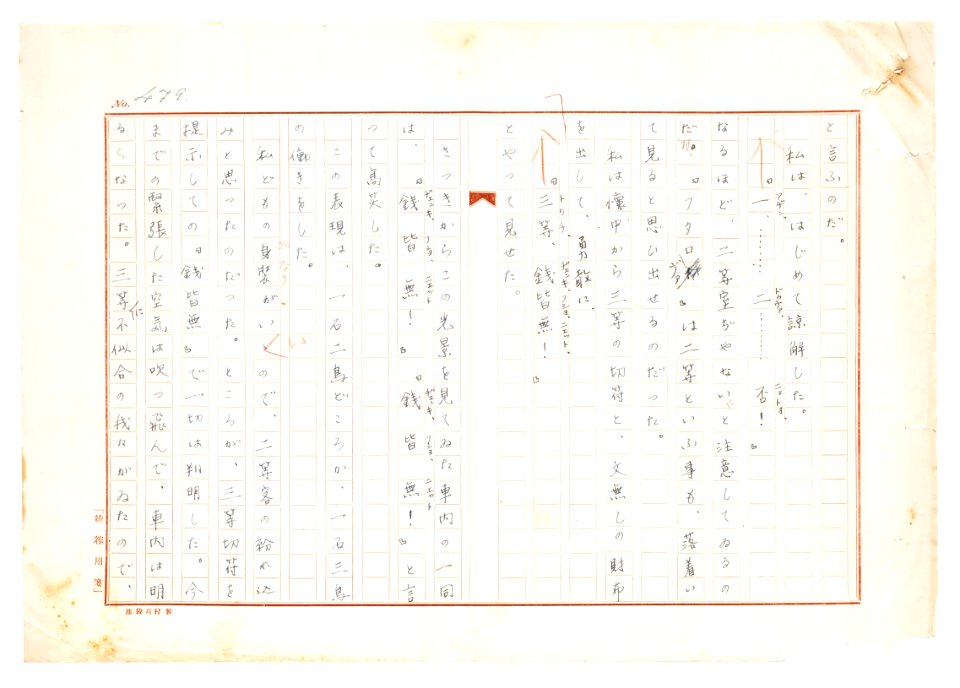 No. 479
と言ふのだ。
私は、はじめて諒解した。
『一、………二………否！』
なるほど、二等室ぢやないと注意してゐるの
だ。『フタロヴア』は二等といふ事も、落着い
て見ると思い出せるのだった。
私は懐中から三等の切符と、文無しの財布
を出して、勇敢に、
『三等、銭皆無！』
とやって見せた。
さっきからこの光景を見てゐた車内の一同
は、『銭皆無！』『銭皆無！』と言
って高笑した。
この表現は、一石二鳥どころか、一石三鳥
の働きをした。
私どもの身装がいゝので、二等客の紛れ込
みと思ったのだった。ところが、三等切符を
提示しての『銭皆無』で一切は判明した。今
までの緊張した空気は吹っ飛んで、車内は明
るくなった。三等に不似合の我々がゐたので、
「新稿用箋」